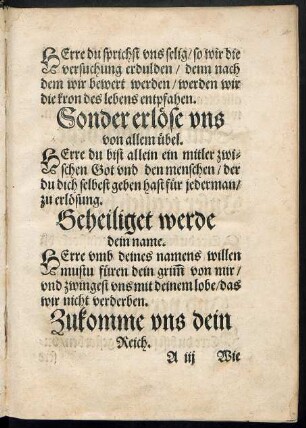 HErre du sprichst vns selig/ so wir die
versuchung erdulden/ denn nach
dem wir bewert werden/ werden wir
die kron des lebens entpfahen.
Sonder erlöse vns
von allem übel.
HErre du bist allein ein mitler zwi-
schen Got vnd den menschen/ der
du dich selbest geben hast für jederman/
zu erlösung.
Geheiliget werde
dein name.
HErre vmb deines namens willen
mustu füren dein grim̃ von mir/
vnd zwingest vns mit deinem lobe/ das
wir nicht verderben.
Zukomme vns dein
Reich.
A iij Wie